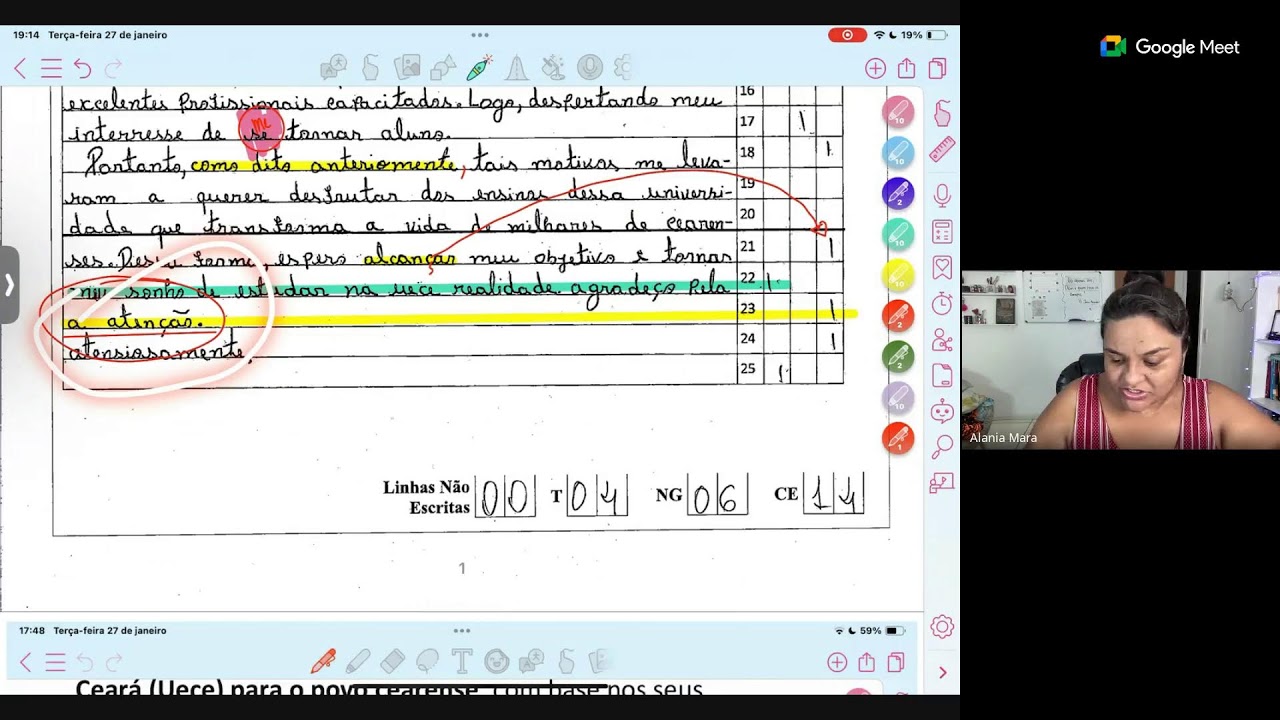 19:14 Terça-feira 27 de janeiro
19%
Google Meet
excelentes profissionais capacitados. Logo, despertando meu 16
me
interresse de se tornar aluno. 17
Portanto, como dito anteriormente, tais motivos me leva- 18
ram a querer desfrutar dos ensinos dessa universi- 19
dade que transforma a vida de milhares de cearen- 20
ses. Dessa forma, espero alcançar meu objetivo e tornar 21
sonho de estudar na uece realidade agradeço pela 22
a atenção. 23
atensiosamente, 24
25
Linhas Não Escritas 00 T 04 NG 06 CE 14
1
Alania Mara
17:48 Terça-feira 27 de janeiro
59%
Ceará (Uece) para o povo cearense, com base nos seus